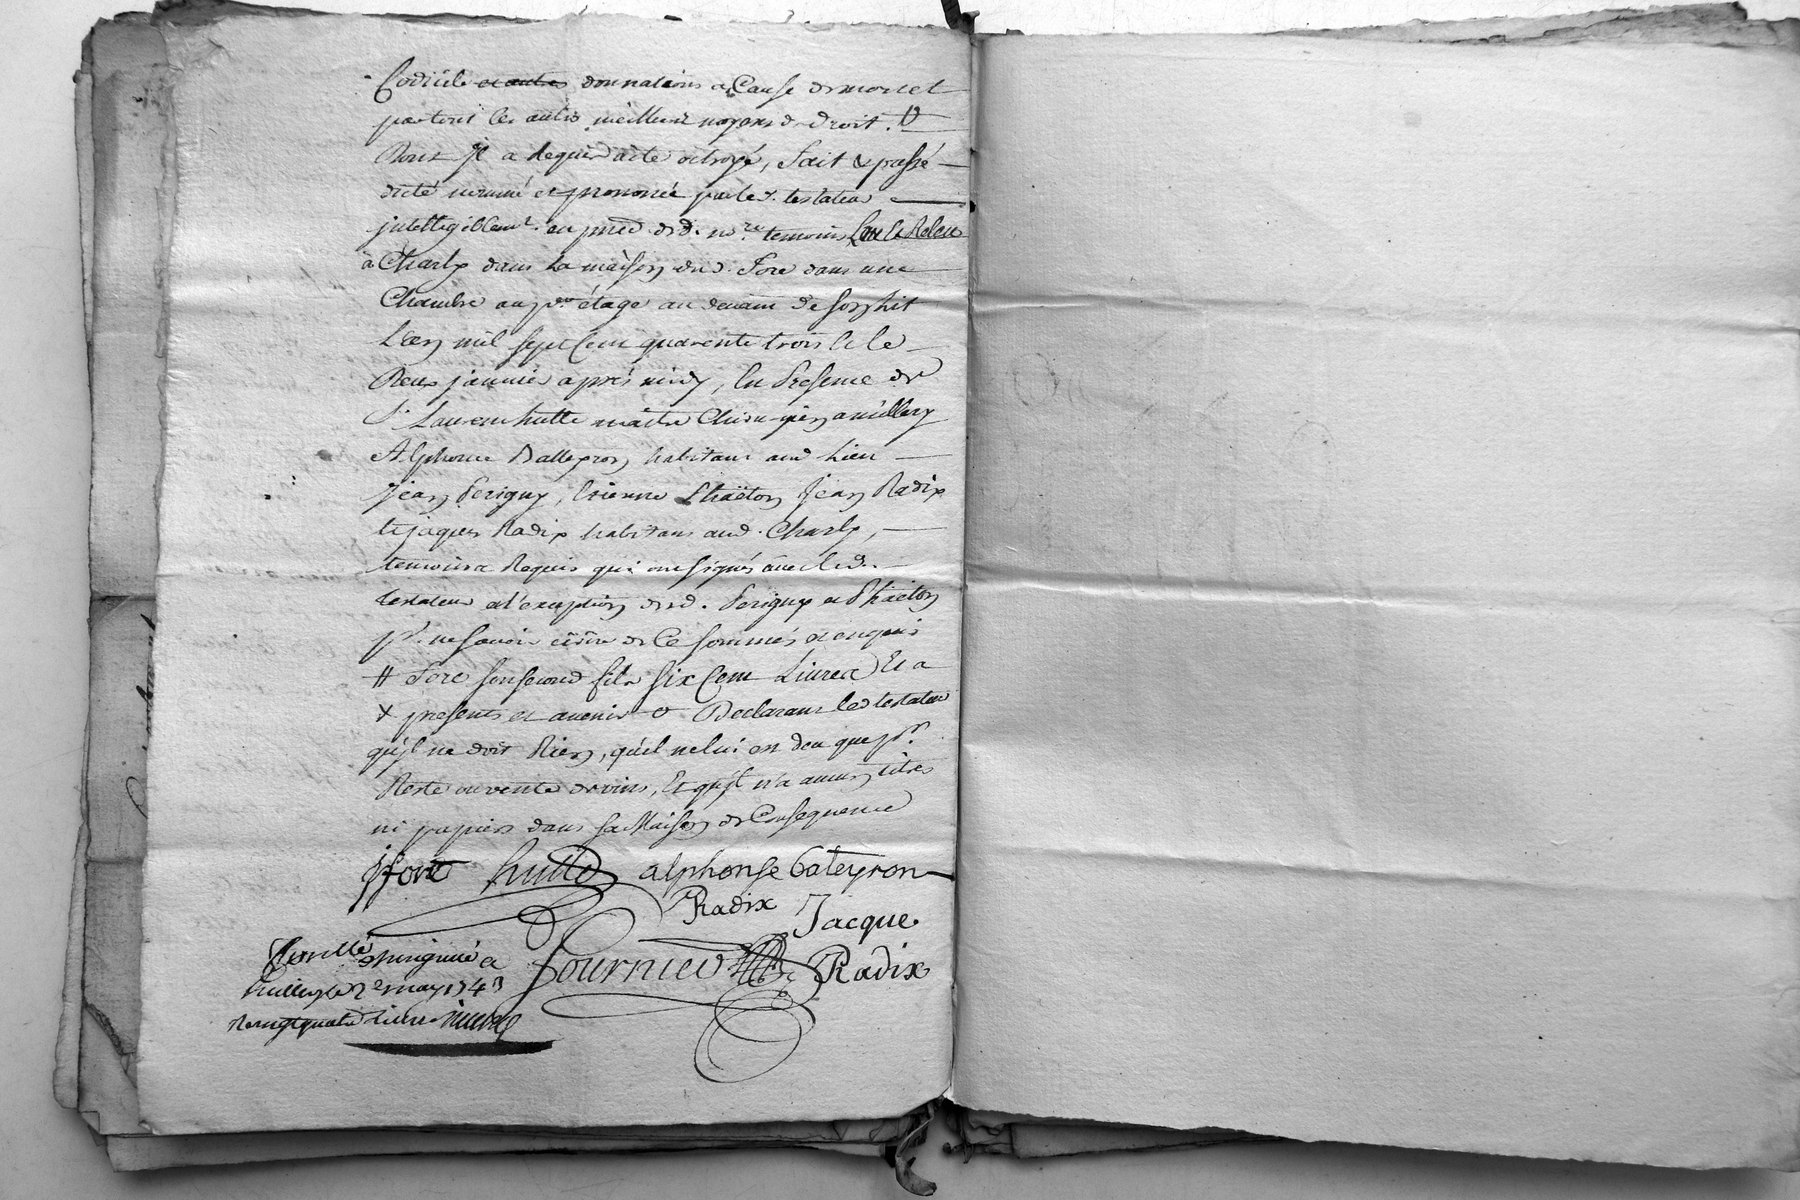 Codicile et autres donnations a Cause de mort et
par tout les autre meilleurs moyens de droit. V
Dont Jl a Requis acte octroyé, fait & passé
dicté nommé et prononcé par led. testateur
jntelligiblemt. en pnce d. d. nore. temoins Leu & Releu
à Charly dans la maison dud. Fore dans une
Chambre au per. étage au devant de son Lit
L'an mil sept Cent quarente trois & le
Deux janvier après midy, En Presence de
Sr. Laurent hutte maitre Chirurgien a millery
Alphonse Batteyron habitant aud. Lieu
Jean Perigny, Etienne Phaëton Jean Radix
& jaques Radix habitans aud. Charly,
temoins Requis qui ont signés avec led.
testateur a l'exception desd. Perigny et Phaëton
pr. ne savoir écrire de Ce sommés et enquis
# Fore son second fils six Cent Livres Et a
X presents et avenir Declarant led testateur
qu'jl ne doit Rien, qu'il ne lui est deu que pr.
Reste ou vente de vins, Et qu'jl n'a aucuns titres
ni papiers dans sa Maison de Consequence
jfore hutte alphonse bateyron
Radix Jacque
Radix
fournier
Controllé a
millery le 2e may 1743
Recu quatre Livres